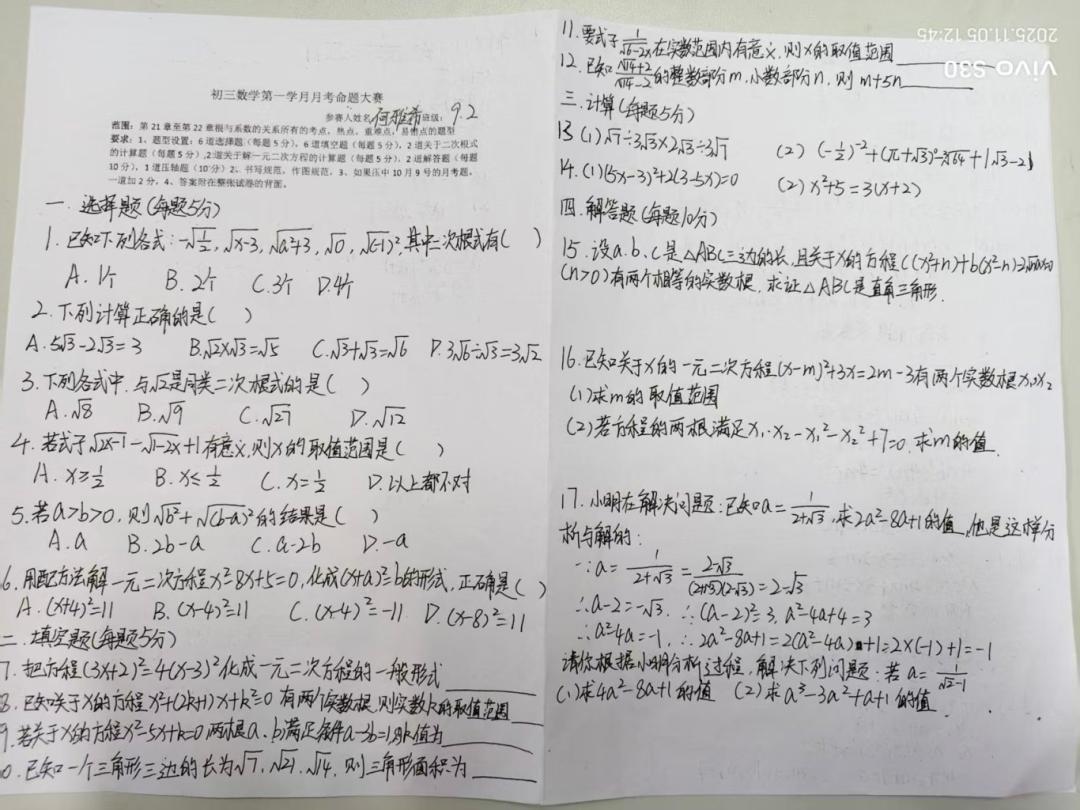 初三数学第一学月月考命题大赛
参赛人姓名:何雅希 班级: 9.2
范围:第 21 章至第 22 章根与系数的关系所有的考点,热点,重难点,易错点的题型
要求:1、题型设置:6 道选择题(每题 5 分),6 道填空题(每题 5 分),2 道关于二次根式
的计算题(每题 5 分),2 道关于解一元二次方程的计算题(每题 5 分),2 道解答题(每题
10 分),1 道压轴题(10 分)2、书写规范,作图规范,3、如果压中 10 月 9 号的月考题,
一道加 2 分,4、答案附在整张试卷的背面。
一. 选择题(每题5分)
1. 已知下列各式: -√(1/2), √(x-3), √(a²+3), √0, √(-1)², 其中二次根式有( )
A. 1个 B. 2个 C. 3个 D. 4个
2. 下列计算正确的是( )
A. 5√3-2√3=3 B. √2×√3=√5 C. √3+√3=√6 D. 3√6÷√3=3√2
3. 下列各式中, 与√2是同类二次根式的是( )
A. √8 B. √9 C. √27 D. √12
4. 若式子√(2x-1)-√(1-2x)+1有意义, 则x的取值范围是( )
A. x≥1/2 B. x≤1/2 C. x=1/2 D. 以上都不对
5. 若a>b>0, 则√b²+√(b-a)²的结果是( )
A. a B. 2b-a C. a-2b D. -a
6. 用配方法解一元二次方程x²-8x+5=0, 化成(x+a)²=b的形式, 正确是( )
A. (x+4)²=11 B. (x-4)²=11 C. (x-4)²=-11 D. (x-8)²=11
二. 填空题(每题5分)
7. 把方程(3x+2)²=4(x-3)²化成一元二次方程的一般形式
8. 已知关于x的方程x²+(2k+1)x+k²=0 有两个实数根, 则实数k的取值范围
9. 若关于x的方程x²-5x+k=0两根a、b满足条件a-b=1则k值为
0. 已知一个三角形三边的长为√7, √21, √14, 则三角形面积为
11. 要式子1/√(6-2x)在实数范围内有意义, 则x的取值范围
12. 已知(√14+2)/(√14-2)的整数部分m, 小数部分n, 则 m+5n
三. 计算(每题5分)
13 (1) √7÷3√3×2√3÷3√7 (2) (-1/2)⁻²+(π+√3)⁰-∛64+|√3-2|
14. (1) (5x-3)²+2(3-5x)=0 (2) x²+5=3(x+2)
四. 解答题(每题10分)
15. 设a. b. c是△ABC三边的长, 且关于x的方程c(x²+n)+b(x²-n)-2√n ax=0
(n>0)有两个相等的实数根, 求证△ABC是直角三角形.
16. 已知关于x的一元二次方程(x-m)²+3x=2m-3有两个实数根x₁,x₂
(1)求m的取值范围
(2)若方程的两根满足x₁·x₂-x₁²-x₂²+7=0, 求m的值.
17. 小明在解决问题: 已知a=1/(2+√3), 求2a²-8a+1的值, 他是这样分
析与解的:
∵a=1/(2+√3)=(2-√3)/((2+√3)(2-√3))=2-√3
∴a-2=-√3. ∴(a-2)²=3, a²-4a+4=3
∴a²-4a=-1, ∴2a²-8a+1=2(a²-4a)+1=2×(-1)+1=-1
请你根据小明分析过程, 解决下列问题: 若a=1/(√2-1)
(1)求4a²-8a+1的值 (2)求a³-3a²+a+1的值
2025.11.05 12:45
vivo S30